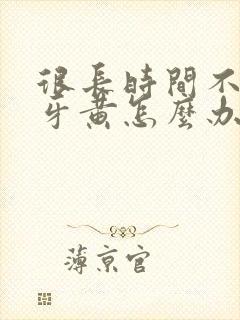 很長時間不
牙黃怎麼办
薄京官